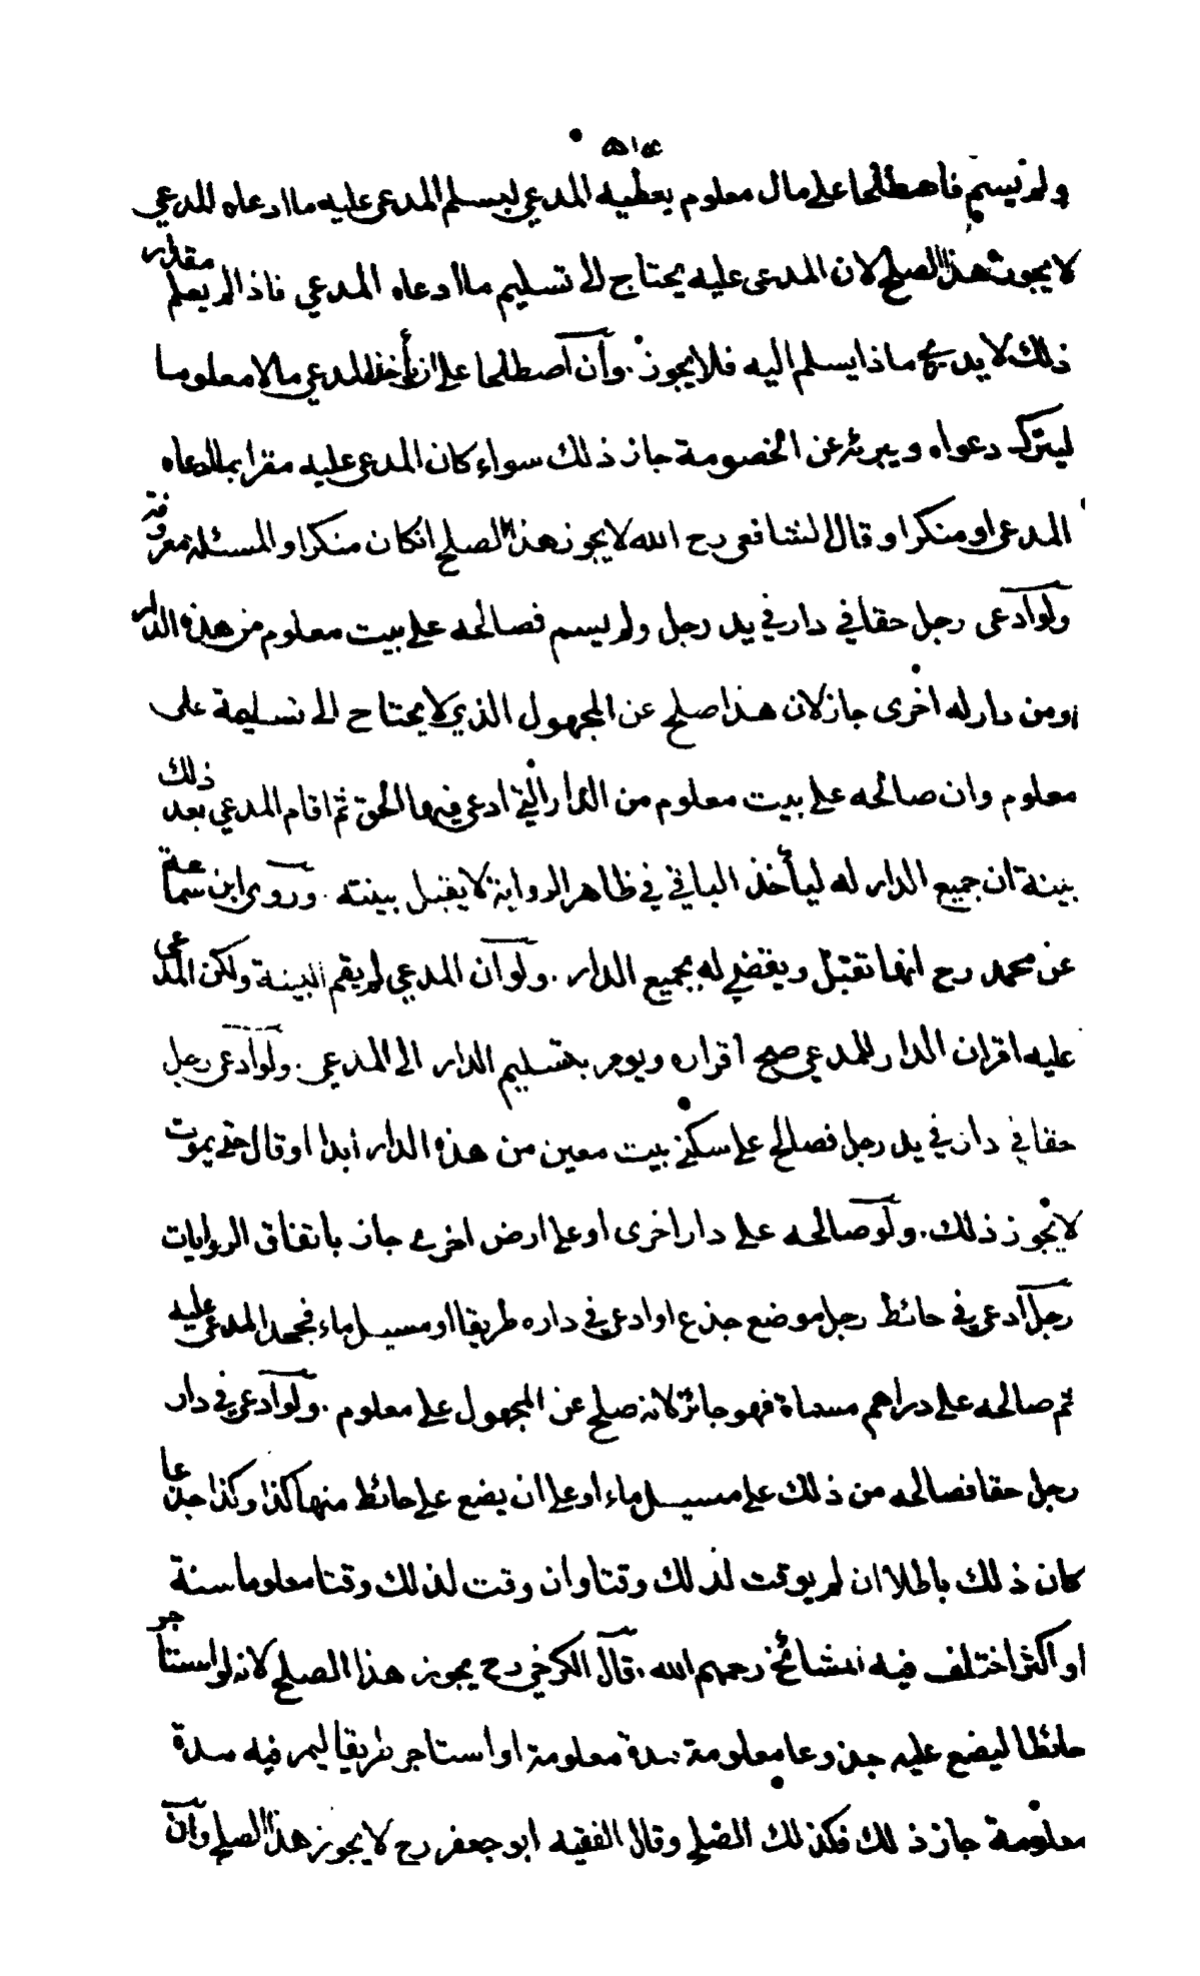 ٥١٤
ولم يسم فاصطلحا على مال معلوم يعطيه المدعي ليسلم المدعى عليه ما ادعاه للمدعي
لا يجوز هذا الصلح لان المدعى عليه يحتاج الى تسليم ما ادعاه المدعي فاذا لم يعلم مقدار
ذلك لا يدري ماذا يسلم اليه فلا يجوز . وان اصطلحا على ان يأخذ المدعي مالا معلوما
ليترك دعواه ويبرئه عن الخصومة جاز ذلك سواء كان المدعى عليه مقرا بما ادعاه
المدعي او منكرا وقال الشافعي رح الله لا يجوز هذا الصلح انكان منكرا والمسئلة معروفة
ولو ادعى رجل حقا في دار في يد رجل ولم يسم فصالحه على بيت معلوم من هذه الدار
او من دار له اخرى جاز لان هذا صلح عن المجهول الذي لا يحتاج الى تسليمة على
معلوم وان صالحه على بيت معلوم من الدار التي ادعى فيها الحق ثم اقام المدعي بعد ذلك
بينة ان جميع الدار له ليأخذ الباقي في ظاهر الرواية لا يقبل بينته . وروى ابن سماعة
عن محمد رح انها تقبل ويقضي له بجميع الدار . ولو ان المدعي لم يقم البينة ولكن المدعى
عليه اقر ان الدار للمدعي صح اقراره ويومر بتسليم الدار الى المدعي . ولو ادعى رجل
حقا في دار في يد رجل فصالح على سكنى بيت معين من هذه الدار ابدا او قال حتى يموت
لا يجوز ذلك . ولو صالحه على دار اخرى او على ارض اخرى جاز باتفاق الروايات
رجل ادعى في حائط رجل موضع جذع او ادعى في داره طريقا او مسيل ماء فجحد المدعى عليه
ثم صالحه على دراهم مسماة فهو جائز لانه صلح عن المجهول على معلوم . ولو ادعى في دار
رجل حقا فصالحه من ذلك على مسيل ماء او على ان يضع على حائط منها كذا وكذا جذعا
كان ذلك باطلا ان لم يوقت لذلك وقتا وان وقت لذلك وقتا معلوما سنة
او اكثر اختلف فيه المشائخ رحمهم الله . قال الكرخي رح يجوز هذا الصلح لانه لو استاجر
حائطا ليضع عليه جذوعا معلومة مدة معلومة او استاجر طريقا ليمر فيه مدة
معلومة جاز ذلك فكذلك الصلح وقال الفقيه ابو جعفر رح لا يجوز هذا الصلح وان